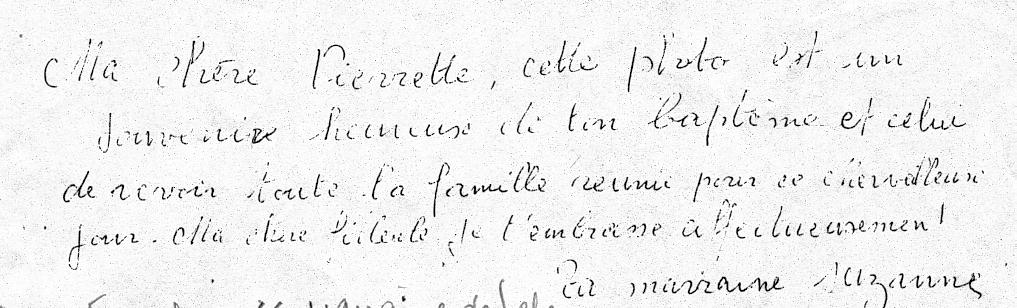 Ma chère Pierrette, cette photo est un
souvenir heureux de ton baptême et celui
de revoir toute la famille réunie pour ce merveilleux
jour. Ma chère je t'embrasse affectueusement
Ta marraine Suzanne